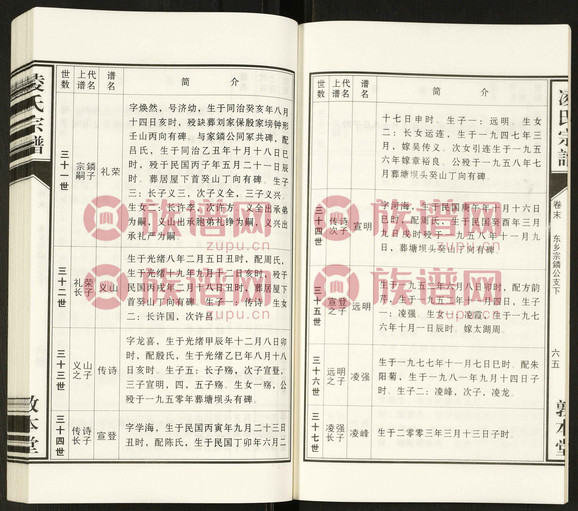 凌氏宗谱
敦本堂
世数
上代谱名
谱名
简 介
三十一世
宗鏻嗣子
礼荣
字焕然，号济幼，生于同治癸亥年八月
十四日亥时，殁缺葬刘家保殷家塝钟形
壬山丙向有碑。与家鏻公同冢共碑，配
吕氏，生于同治乙丑年十月十八日巳
时，殁于民国丙子年五月二十一日辰
时。葬居屋下首癸山丁向有碑。生子
三：长子义三，次子义全，三子义兴。
生女二：长许李，次许方。义全出承弟
为嗣，义山出承胞弟礼铮为嗣，义兴出
承礼严为嗣。
三十二世
礼荣长子
义山
生于光绪八年二月五日丑时，配周氏，
生于光绪十九年九月十二日亥时，殁于
民国丙戌年二月十八日丑时，葬居屋下
首癸山丁向有碑。生子一：传诗。生女
二：长许国，次许吕
三十三世
义山之子
传诗
字龙喜，生于光绪甲辰年十二月八日卯
时，配殷氏，生于光绪乙巳年八月十八
日亥时。生子五：长子殇，次子宣登，
三子宣明，四、五子殇。生女一殇，公
殁于一九五〇年葬塘坝头有碑。
三十四世
传诗长子
宣登
字学海，生于民国丙寅年九月二十三日
丑时，配陈氏，生于民国丁卯年六月二
世数
上代谱名
谱名
简 介
十七日申时。生子一：远明。生女
二：长女运连，生于一九四七年三
月，嫁吴传义。次女引连生于一九五
六年嫁章裕良。公殁于一九五八年七
月葬塘坝头癸山丁向有碑。
三十四世
传诗次子
宣明
字海，生于民国庚午年八月十六日
巳时，配周氏，生于民国癸酉年三月
九日戌时殁于一九五八年十一月九
日，葬塘坝头癸山丁向有碑。
三十五世
宣登之子
远明
生于一九五二年六月八日卯时，配方韵
芹，生于一九五一年四月三日，生子
一：凌强。生女一：凌霞，生于一九七
六年十月一日辰时。嫁太湖周。
三十六世
远明之子
凌强
生于一九七七年十一月七日巳时。配朱
阳菊，生于一九八一年九月十四日子
时。生子二：凌峰，次子，凌龙。
三十七世
凌强长子
凌峰
生于二零零三年三月十三日子时。
凌氏宗谱
卷末
东乡宗鏻公支下
六五
敦本堂
族谱网
zupu.cn
族谱网
zupu.cn
族谱网
zupu.cn
族谱网
zupu.cn
族谱网
zupu.cn
族谱网
zupu.cn